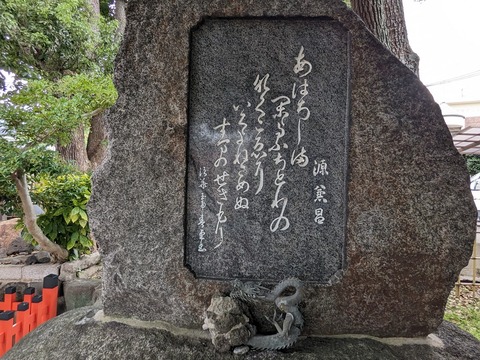 源 兼昌
あはぢしま
かよふちどりの
なくこゑに
いくよねざめぬ
すまのせきもり